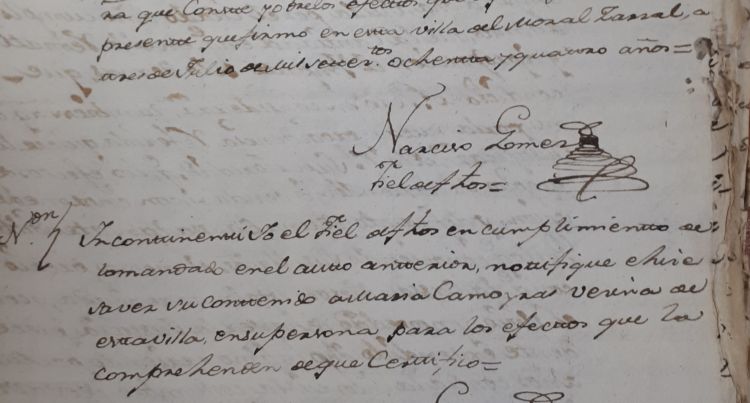 ra que Conste y obrelos efectos que
presente que firmo en esta villa del Moral Zarzal, a
tres de Julio de mil setecr.tos ochenta y quatro años=
Narciso Gomez
fiel de fhos=
N.on
Incontinenti Yo el Fiel de fhos en cumplimiento de
lo mandado en el auto anterior, notifique e hice
saver su contenido a Maria Camoyras vecina de
esta villa, en su persona para los efectos que la
comprehenden de que Certifico=